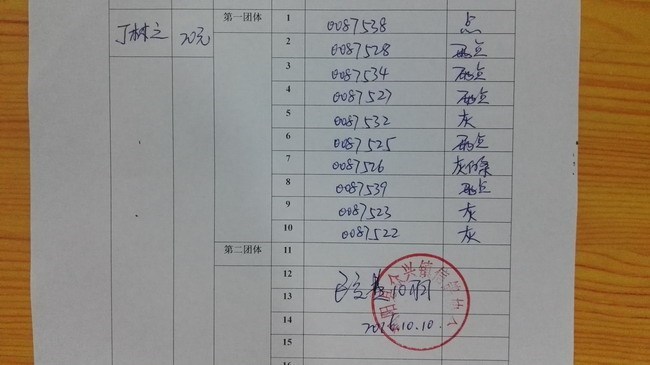 第一团体 1 0087538 点
丁树之 20元
2 0087528 雨点
3 0087534 雨点
4 0087527 雨点
5 0087532 灰
6 0087525 雨点
7 0087526 灰白条
8 0087539 雨点
9 0087523 灰
10 0087522 灰
第二团体 11
12
13
14 2016.10.10.
15
16